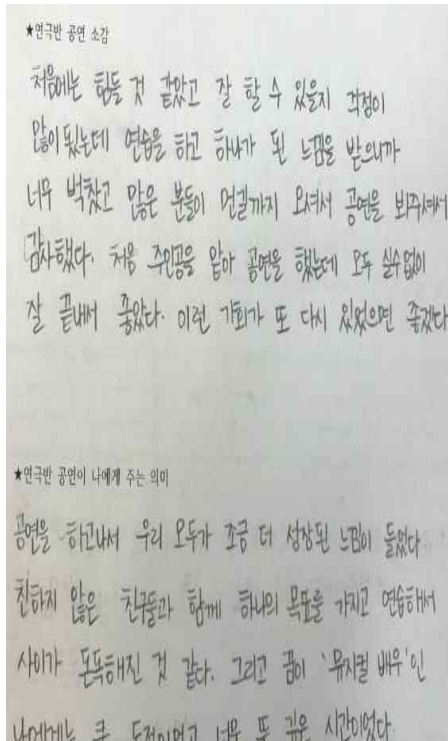 ★연극반 공연 소감
처음에는 힘들 것 같았고 잘 할 수 있을지 걱정이
많이 됐는데 연습을 하고 하나가 된 느낌을 받으니까
너무 벅찼고 많은 분들이 먼길까지 오셔서 공연을 봐주셔서
감사했다. 처음 주인공을 맡아 공연을 했는데 모두 실수없이
잘 끝내서 좋았다. 이런 기회가 또 다시 있었으면 좋겠다
★연극반 공연이 나에게 주는 의미
공연을 하고나서 우리 모두가 조금 더 성장된 느낌이 들었다
친하지 않은 친구들과 함께 하나의 목표를 가지고 연습해서
사이가 돈독해진 것 같다. 그리고 꿈이 '뮤지컬 배우'인
나에게는 큰 도전이었고 너무 뜻 깊은 시간이었다.